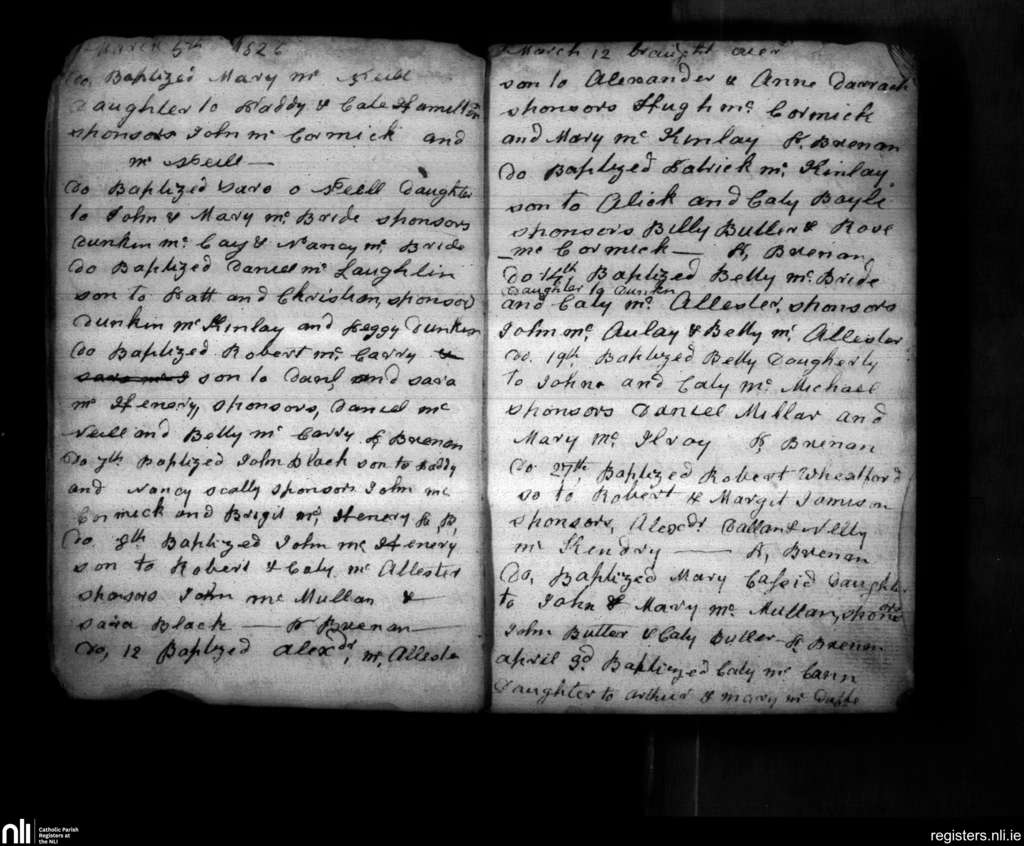 March 5th 1826
Do, Baptized Mary Mc Neill
Daughter to Paddy & Cate Hamelton
sponsors John Mc Cormick and
Mc Neill —
Do Baptized Sara O Neill Daughter
to John & Mary Mc Bride sponsors
Dunkin Mc Cay & Nancy Mc Bride
Do Baptized Daniel Mc Laughlin
son to Patt and Christian, sponsors
Dunkin Mc Kinlay and Peggy Dunken
Do Baptized Robert Mc Carry
son to Danl and Sara
Mc Henery, sponsors, Daniel Mc
Neill and Betty Mc Carry P, Brenan
Do 7th Baptized John Black son to Paddy
and Nancy Scally sponsors John Mc
Cormick and Brigit Mc, Henery P, B,
Do 8th Baptized John Mc Henery
son to Robert & Caty Mc Allester
sponsors John Mc Mullan &
Sara Black — P Brenan —
Do, 12 Baptized Alexdr, Mc, Allester
March 12 brought over
son to Alexander & Anne Darrach
sponsors Hugh Mc Cormick
and Mary Mc Kinlay P, Brenan
Do Baptized Patrick Mc, Kinlay
son to Alick and Caty Boyle
sponsors Billy Butler & Rose
Mc Cormick — P, Brenan,
Do 14th Baptized Betty Mc Bride
Daughter to Dunkn
and Caty Mc Allester, sponsors
John Mc Aulay & Betty Mc Allister
Do. 19th Baptized Betty Daugherty
to John and Caty Mc Michael
sponsors Daniel Millar and
Mary Mc Ilroy P, Brenan
Do 27th, Baptized Robert Wheatford
so to Robert & Margit Jamison
sponsors, Alexdr Dallan & Nelly
Mc Kendry — P, Brenan
Do, Baptized Mary Cassid Daughter
to John & Mary Mc Mullan, sponsors
John Butler & Caty Butler — P Brenan
April 3d Baptized Caty Mc Cann
Daughter to Arthur & Mary Mc Duffe
nli
Catholic Parish
Registers at
the NLI
registers.nli.ie